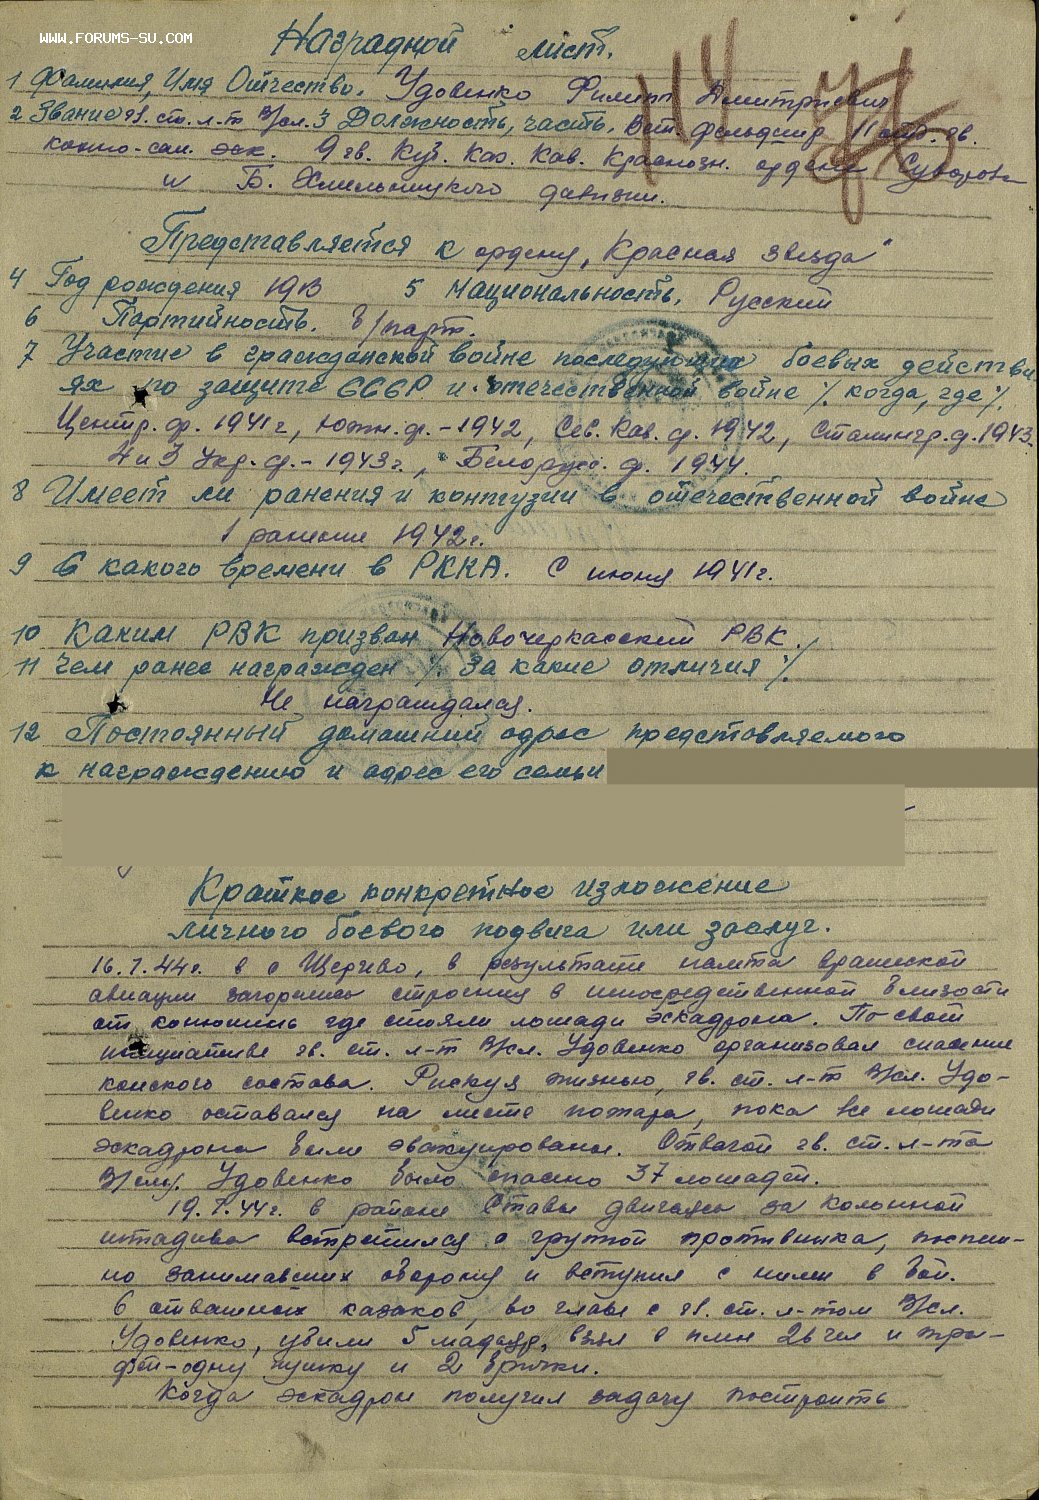 WWW.FORUMS-SU.COM
Наградной лист.
114
1 Фамилия, Имя Отчество. Удовенко Филипп Дмитриевич
2 Звание гв. ст. л-т В/сл. 3 Должность, часть. Вет. фельдшер 11 отд. гв.
конно-сан. эск. 9 гв. Куб. Каз. Кав. Краснозн. ордена Суворова
и Б. Хмельницкого дивизии.
Представляется к ордену "Красная Звезда"
4 Год рождения 1913 5 Национальность. Русский
6 Партийность. б/парт.
7 Участие в гражданской войне последующих боевых действи
ях по защите СССР и отечественной войне /. когда, где /.
Центр. ф. 1941 г, Южн. ф. - 1942, Сев. Кав. ф. 1942, Сталингр. ф. 1943.
4 и 3 Укр. ф. - 1943 г., Белорус. ф. 1944.
8 Имеет ли ранения и контузии в отечественной войне
1 ранение 1942 г.
9 С какого времени в РККА. С июня 1941 г.
10 Каким РВК призван Новочеркасский РВК
11 Чем ранее награжден /. За какие отличия /.
Не награждался.
12 Постоянный домашний адрес представляемого
к награждению и адрес его семьи
Краткое конкретное изложение
личного боевого подвига или заслуг.
16.7.44 г. в с Щерчево, в результате налета вражеской
авиации загорелись строения в непосредственной близости
от конюшень где стояли лошади эскадрона. По своей
инициативе гв. ст. л-т В/сл. Удовенко организовал спасение
конского состава. Рискуя жизнью, гв. ст. л-т В/сл. Удо-
венко оставался на месте пожара, пока все лошади
эскадрона были эвакуированы. Отвагой гв. ст. л-та
В/служ. Удовенко было спасено 37 лошадей.
19.7.44 г. в районе Ставы двигаясь за колонной
штадива встретился с группой противника, поспеш-
но занимавших оборону и вступил с ними в бой.
6 отважных казаков, во главе с гв. ст. л-том В/сл.
Удовенко, убили 5 мадьяр, взял в плен 26 чел и тро-
феи-одну пушку и 2 брички.
Когда эскадрон получил задачу построить